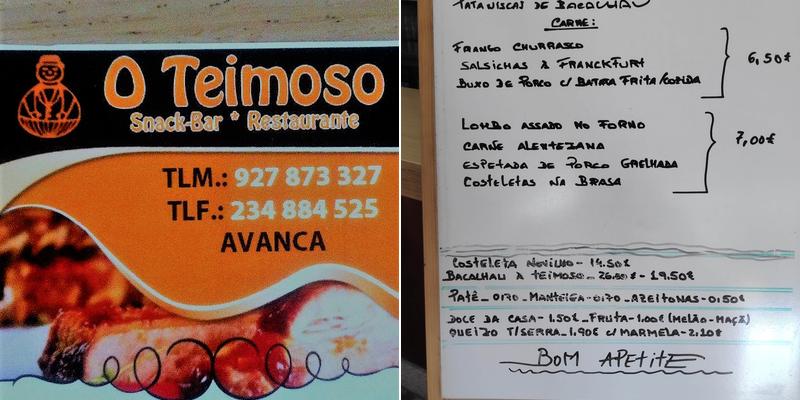 O Teimoso
Snack-Bar * Restaurante
TLM.: 927 873 327
TLF.: 234 884 525
AVANCA
PATANISCAS DE BACALHAU
CARNE:
FRANGO CHURRASCO
SALSICHAS À FRANCKFURT
BUXO DE PORCO C/ BATATA FRITA/COZIDA
6,50€
LOMBO ASSADO NO FORNO
CARNE ALENTEJANA
ESPETADA DE PORCO GRELHADA
COSTELETAS NA BRASA
7,00€
COSTELETA NOVILHO - 14.50€
BACALHAU À TEIMOSO - - 19.50€
PATÊ - 0.70 - MANTEIGA - 0.70 - AZEITONAS - 0.50€
DOCE DA CASA - 1.50€ - FRUTA - 1.00€ (MELÃO - MAÇÃ)
QUEIJO T/SERRA - 1.90€ C/ MARMELA - 2.20€
BOM APETITE